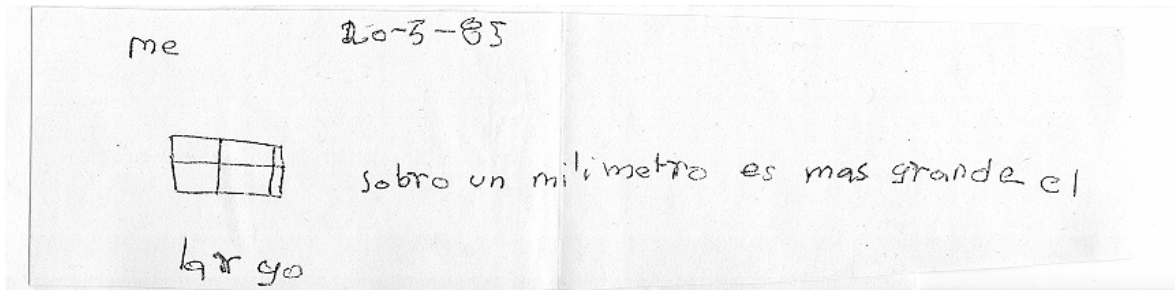 me 20-5-85
sobro un milimetro es mas grande el
largo